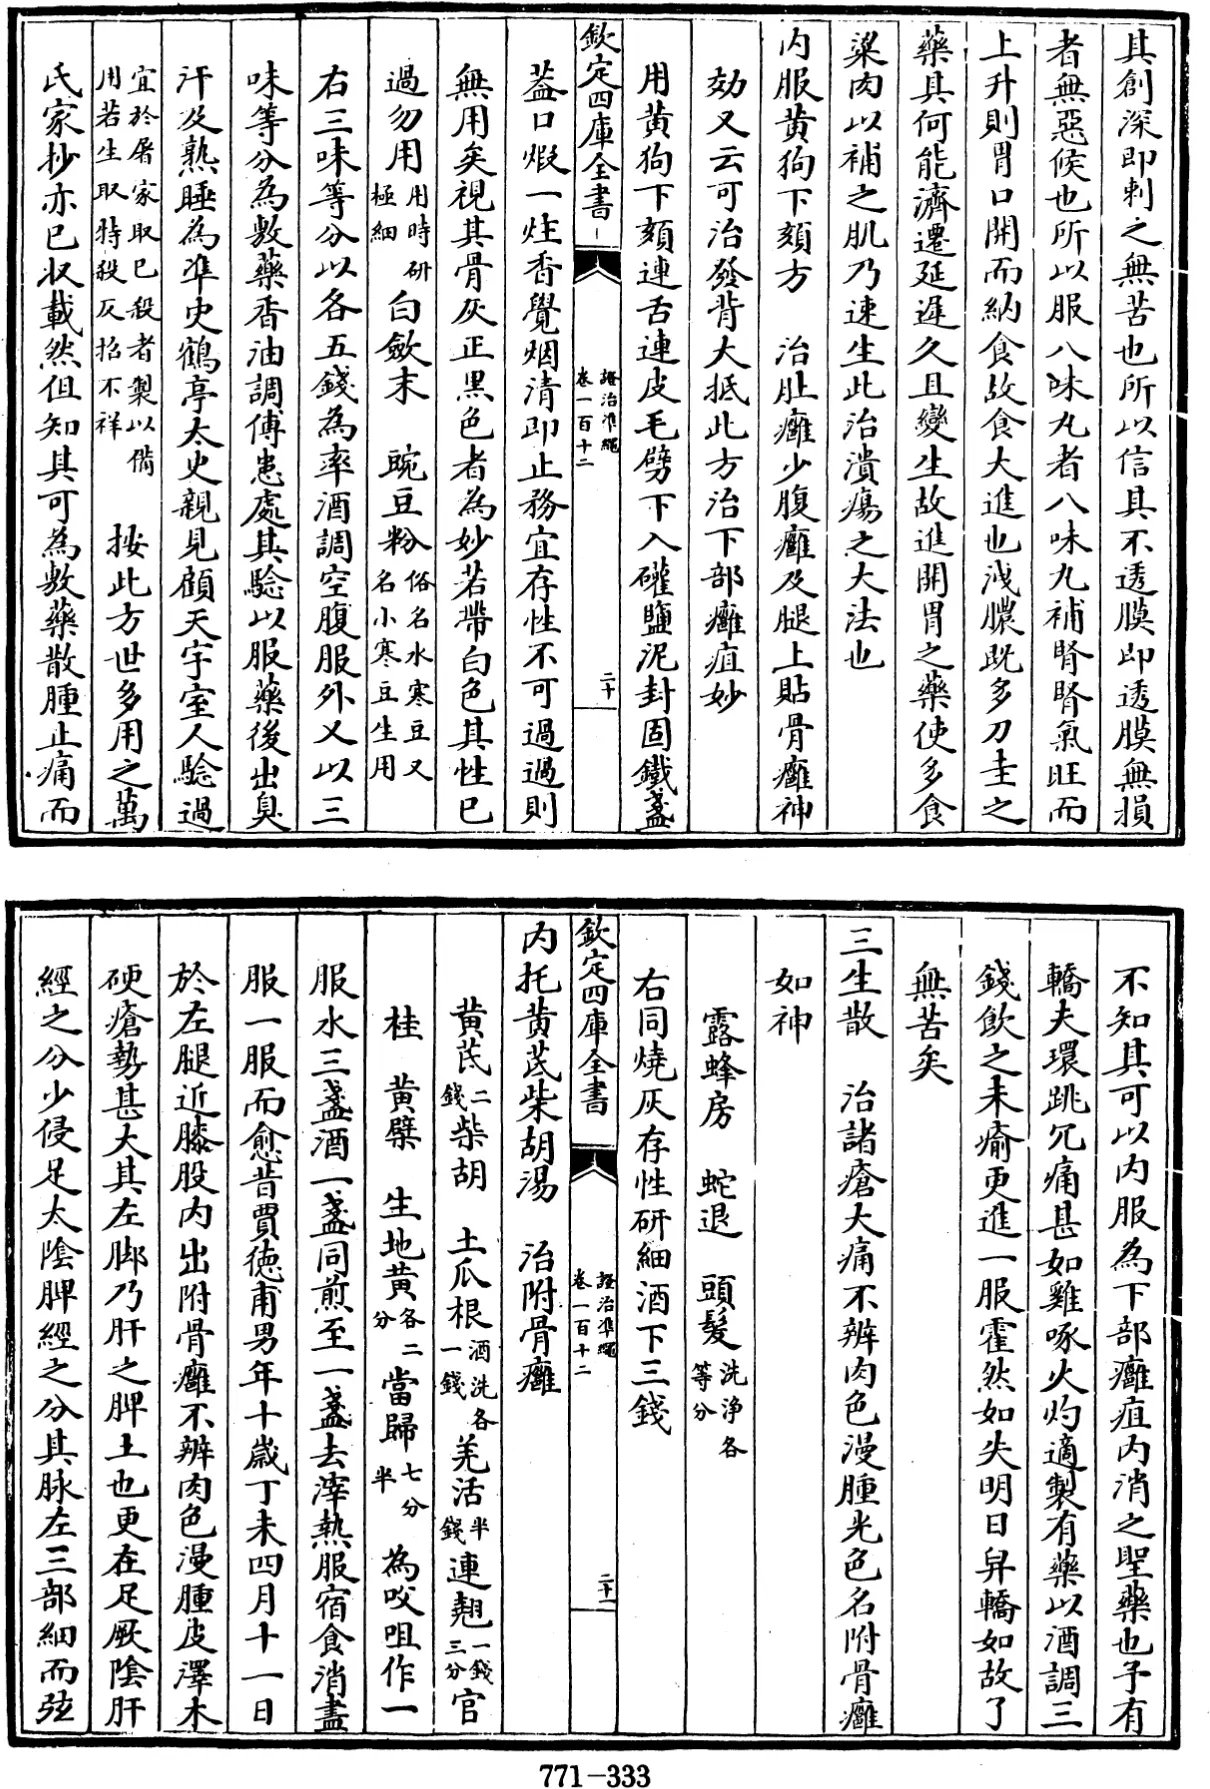 其創深即刺之無苦也所以信其不透膜即透膜無損
者無惡候也所以服八味丸者八味丸補腎腎氣旺而
上升則胃口開而納食故食大進也洩膿既多刀圭之
藥具何能濟遷延遲久且變生故進開胃之藥使多食
粱肉以補之肌乃速生此治潰瘍之大法也
内服黄狗下頦方 治肚癰少腹癰及腿上貼骨癰神
効又云可治發背大抵此方治下部癰疽妙
用黄狗下頦連舌連皮毛劈下入礶鹽泥封固鐵盞
欽定四庫全書
證治凖繩
卷一百十二
二十
蓋口煆一炷香覺烟清即止務宜存性不可過過則
無用矣視其骨灰正黒色者為妙若帶白色其性已
過勿用用時研極細 白蘞末 豌豆粉俗名水寒豆又名小寒豆生用
右三味等分以各五錢為率酒調空腹服外又以三
味等分為敷藥香油調傅患處其驗以服藥後出臭
汗及熟睡為凖史鶴亭太史親見顧天宇室人驗過
宜於屠家取已殺者製以備用若生取特殺反招不祥 按此方世多用之萬
氏家抄亦已收載然但知其可為敷藥散腫止痛而
不知其可以内服為下部癰疽内消之聖藥也予有
轎夫環跳穴痛甚如雞啄火灼適製有藥以酒調三
錢飲之未瘉更進一服霍然如失明日舁轎如故了
無苦矣
三生散 治諸瘡大痛不辨肉色漫腫光色名附骨癰
如神
露蜂房 蛇退 頭髪洗淨各等分
右同燒灰存性研細酒下三錢
欽定四庫全書
證治凖繩
卷一百十二
二十一
内托黄芪柴胡湯 治附骨癰
黄芪二錢 柴胡 土瓜根酒洗各一錢 羌活半錢 連翹一錢三分 官
桂 黄檗 生地黄各二分 當歸七分半 為㕮咀作一
服水三盞酒一盞同煎至一盞去滓熱服宿食消盡
服一服而愈昔賈德甫男年十歲丁未四月十一日
於左腿近膝股内出附骨癰不辨肉色漫腫皮澤木
硬瘡勢甚大其左脚乃肝之脾土也更在足厥陰肝
經之分少侵足太陰脾經之分其脉左三部細而弦
771-333